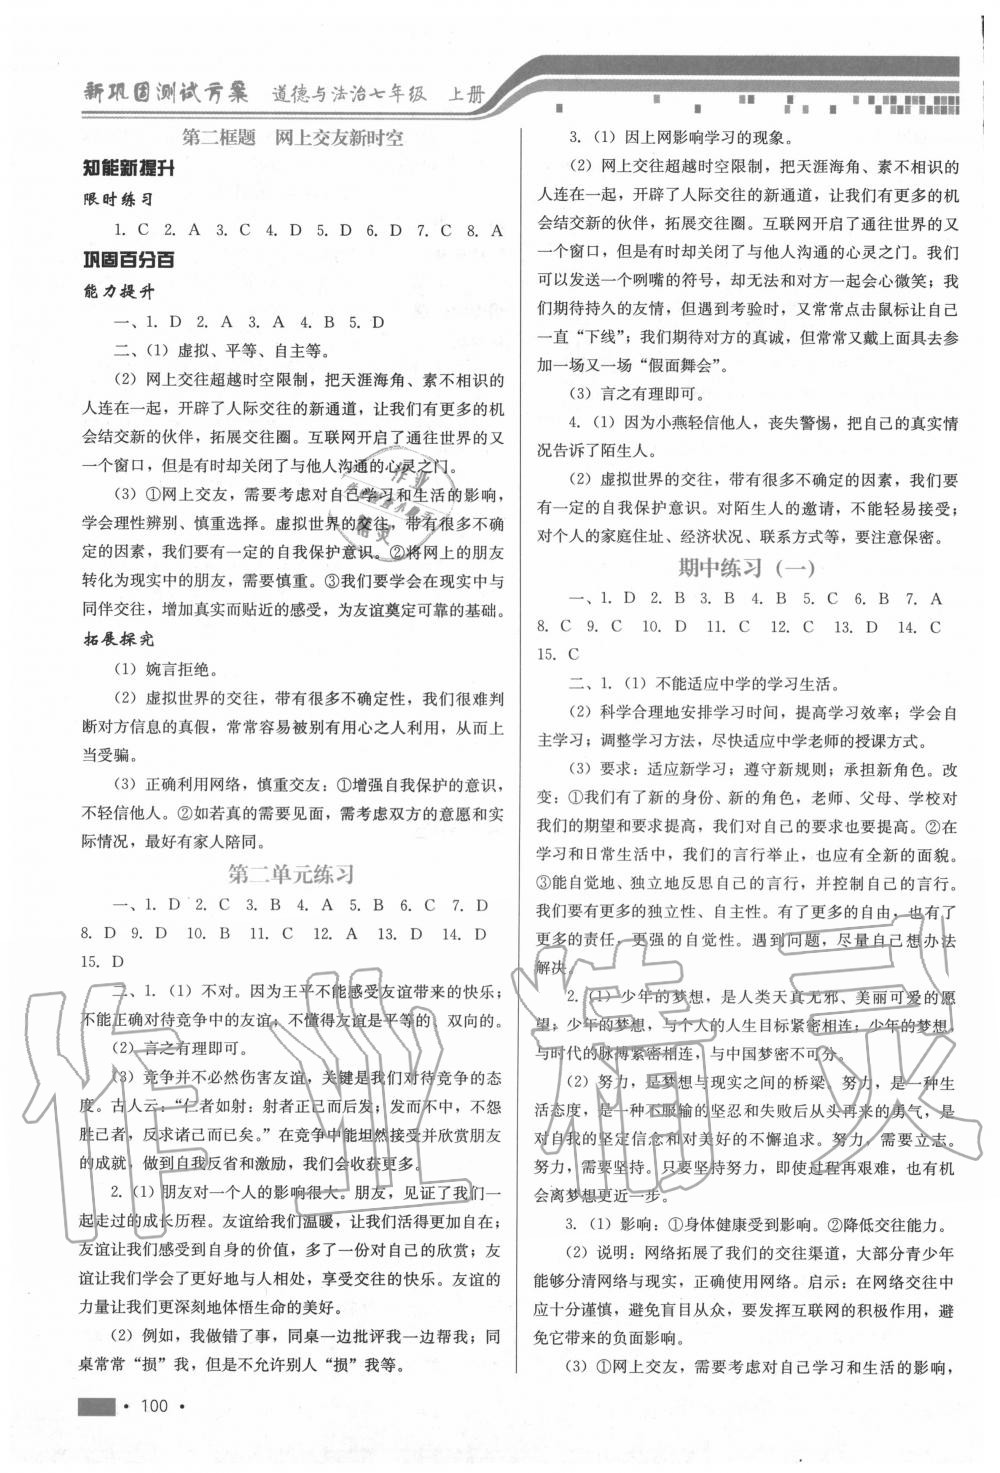 新巩固测试方案 道德与法治七年级 上册
第二框题 网上交友新时空
知能新提升
限时练习
1. C 2. A 3. C 4. D 5. D 6. D 7. C 8. A
巩固百分百
能力提升
一、1. D 2. A 3. A 4. B 5. D
二、（1）虚拟、平等、自主等。
（2）网上交往超越时空限制，把天涯海角、素不相识的
人连在一起，开辟了人际交往的新通道，让我们有更多的机
会结交新的伙伴，拓展交往圈。互联网开启了通往世界的又
一个窗口，但是有时却关闭了与他人沟通的心灵之门。
（3）①网上交友，需要考虑对自己学习和生活的影响，
学会理性辨别、慎重选择。虚拟世界的交往，带有很多不确
定的因素，我们要有一定的自我保护意识。②将网上的朋友
转化为现实中的朋友，需要慎重。③我们要学会在现实中与
同伴交往，增加真实而贴近的感受，为友谊奠定可靠的基础。
拓展探究
（1）婉言拒绝。
（2）虚拟世界的交往，带有很多不确定性，我们很难判
断对方信息的真假，常常容易被别有用心之人利用，从而上
当受骗。
（3）正确利用网络，慎重交友：①增强自我保护的意识，
不轻信他人。②如若真的需要见面，需考虑双方的意愿和实
际情况，最好有家人陪同。
第二单元练习
一、1. D 2. C 3. B 4. A 5. B 6. C 7. D
8. D 9. D 10. B 11. C 12. A 13. D 14. D
15. D
二、1.（1）不对。因为王平不能感受友谊带来的快乐；
不能正确对待竞争中的友谊；不懂得友谊是平等的、双向的。
（2）言之有理即可。
（3）竞争并不必然伤害友谊，关键是我们对待竞争的态
度。古人云：“仁者如射：射者正己而后发；发而不中，不怨
胜己者，反求诸己而已矣。”在竞争中能坦然接受并欣赏朋友
的成就，做到自我反省和激励，我们会收获更多。
2.（1）朋友对一个人的影响很大。朋友，见证了我们一
起走过的成长历程。友谊给我们温暖，让我们活得更加自在；
友谊让我们感受到自身的价值，多了一份对自己的欣赏；友
谊让我们学会了更好地与人相处，享受交往的快乐。友谊的
力量让我们更深刻地体悟生命的美好。
（2）例如，我做错了事，同桌一边批评我一边帮我；同
桌常常“损”我，但是不允许别人“损”我等。
• 100 •
3.（1）因上网影响学习的现象。
（2）网上交往超越时空限制，把天涯海角、素不相识的
人连在一起，开辟了人际交往的新通道，让我们有更多的机
会结交新的伙伴，拓展交往圈。互联网开启了通往世界的又
一个窗口，但是有时却关闭了与他人沟通的心灵之门。我们
可以发送一个咧嘴的符号，却无法和对方一起会心微笑；我
们期待持久的友情，但遇到考验时，又常常点击鼠标让自己
一直“下线”；我们期待对方的真诚，但常常又戴上面具去参
加一场又一场“假面舞会”。
（3）言之有理即可。
4.（1）因为小燕轻信他人，丧失警惕，把自己的真实情
况告诉了陌生人。
（2）虚拟世界的交往，带有很多不确定的因素，我们要
有一定的自我保护意识。对陌生人的邀请，不能轻易接受；
对个人的家庭住址、经济状况、联系方式等，要注意保密。
期中练习（一）
一、1. D 2. B 3. B 4. B 5. C 6. B 7. A
8. C 9. C 10. D 11. C 12. C 13. D 14. C
15. C
二、1.（1）不能适应中学的学习生活。
（2）科学合理地安排学习时间，提高学习效率；学会自
主学习；调整学习方法，尽快适应中学老师的授课方式。
（3）要求：适应新学习；遵守新规则；承担新角色。改
变：①我们有了新的身份、新的角色，老师、父母、学校对
我们的期望和要求提高，我们对自己的要求也要提高。②在
学习和日常生活中，我们的言行举止，也应有全新的面貌。
③能自觉地、独立地反思自己的言行，并控制自己的言行。
我们要有更多的独立性、自主性。有了更多的自由，也有了
更多的责任，更强的自觉性。遇到问题，尽量自己想办法
解决。
2.（1）少年的梦想，是人类天真无邪、美丽可爱的愿
望；少年的梦想，与个人的人生目标紧密相连；少年的梦想，
与时代的脉搏紧密相连，与中国梦密不可分。
（2）努力，是梦想与现实之间的桥梁。努力，是一种生
活态度，是一种不服输的坚忍和失败后从头再来的勇气，是
对自我的坚定信念和对美好的不懈追求。努力，需要立志。
努力，需要坚持。只要坚持努力，即使过程再艰难，也有机
会离梦想更近一步。
3.（1）影响：①身体健康受到影响。②降低交往能力。
（2）说明：网络拓展了我们的交往渠道，大部分青少年
能够分清网络与现实，正确使用网络。启示：在网络交往中
应十分谨慎，避免盲目从众，要发挥互联网的积极作用，避
免它带来的负面影响。
（3）①网上交友，需要考虑对自己学习和生活的影响，
作业精灵